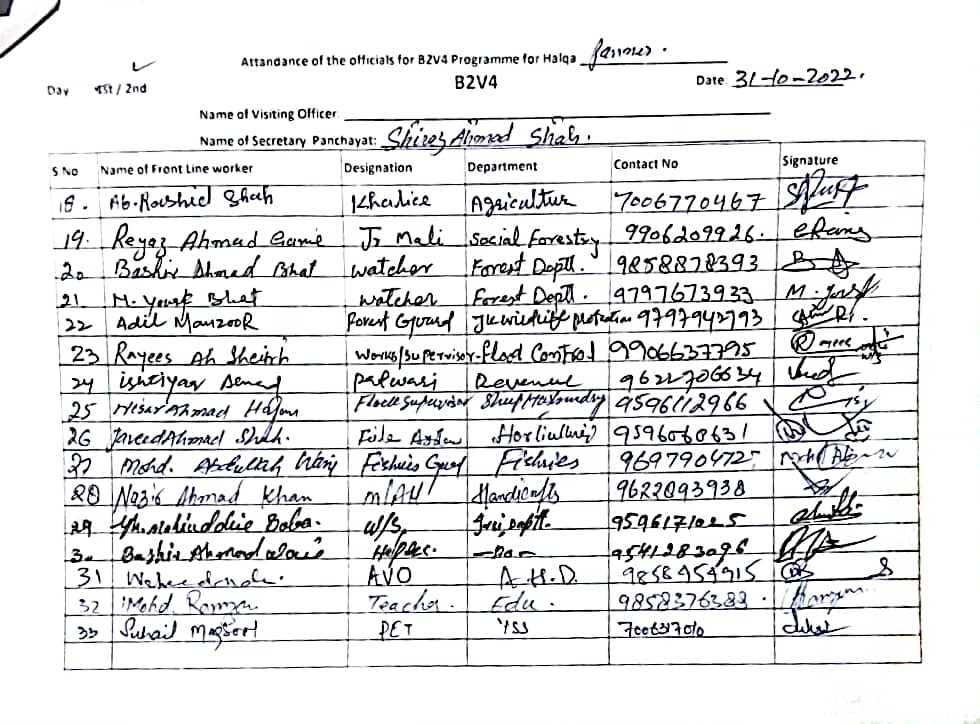 Attandance of the officials for B2V4 Programme for Halqa
B2V4
Day 1st / 2nd Date: 31-10-2022.
Name of Visiting Officer:
Name of Secretary Panchayat: Shiraz Ahmad Shah.
S No Name of Front Line worker Designation Department Contact No Signature
18. Ab. Rashid Shah Agricultur 7006770467
19. Reyaz Ahmad Ganie Jr Mali Social Forestry 9906209926.
20 Bashir Ahmad Bhat watcher Forest Deptt. 9858878393
21 M. Yousf Bhat watcher Forest Deptt. 9797673933 M. Yousf
22 Adil Manzoor Forest Guard JK wildlife protection 9797942793
23 Rayees Ah Sheikh Works/Supervisor Flood Control 9906637795
24 ishtiyaq Ahmad patwari Revenue 9622706634
25 Nisar Ahmad Flock Supervisor 9596112966
26 Javeed Ahmad Shah. 9596060631
27 Mohd. Abdullah Wani Fishries 969790472
28 Nazir Ahmad Khan Handicrafts 9622093938
29 Baba. W/S. 9596171025
30 Bashir Ahmad Helper. 9541283096
31 AVO A.H.D. 9858454915
32 Mohd. Ramzan Teacher. Edu. 9858376388.
33 Suhail PET YSS 700637010